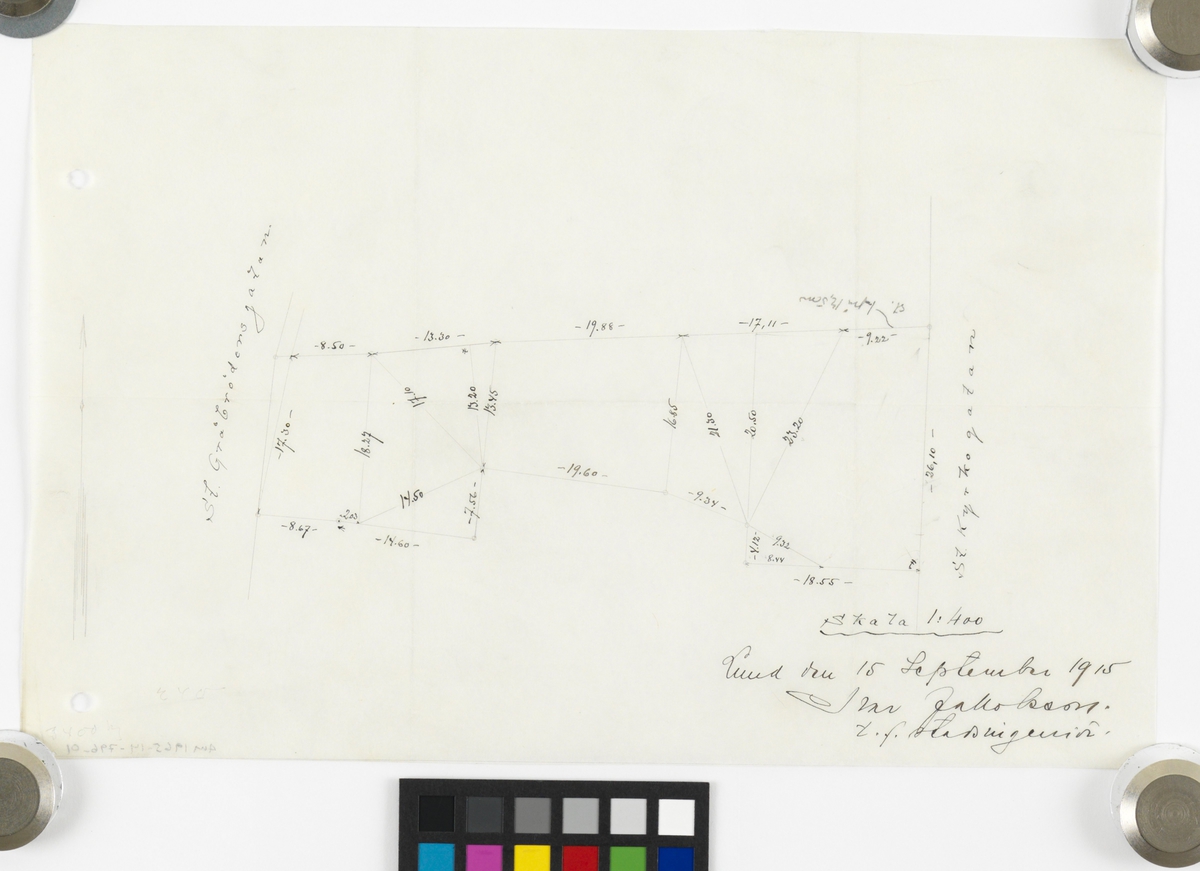 St Gråbrödersgatan.
-8.50-
-13.30-
-19.88-
-17,11-
-9.22-
-17.30-
18.27
17.10
13.20
13.45
16.85
21.30
20.50
23.20
-36,10-
St Kyrkogatan
-8.67-
2.03
14.50
-14.60-
-7.56-
-19.60-
-9.34-
-4.12-
9.32
8.44
-18.55-
Skala 1:400
Lund den 15 September 1915
Ivar Jakobsson.
t. f. Stadsingeniör.